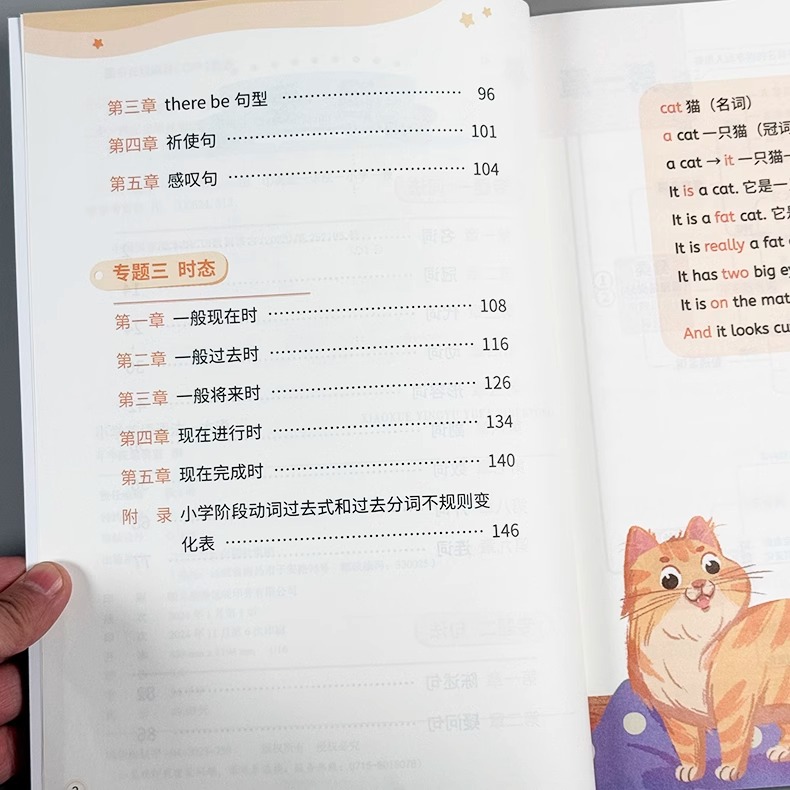 第三章 there be 句型 …………………………… 96
第四章 祈使句 …………………………………… 101
第五章 感叹句 …………………………………… 104
专题三 时态
第一章 一般现在时 ……………………………… 108
第二章 一般过去时 ……………………………… 116
第三章 一般将来时 ……………………………… 126
第四章 现在进行时 ……………………………… 134
第五章 现在完成时 ……………………………… 140
附 录 小学阶段动词过去式和过去分词不规则变
化表 ……………………………………… 146
cat 猫（名词）
a cat 一只猫（冠词
a cat → it 一只猫
It is a cat. 它是一
It is a fat cat. 它
It is really a fat
It has two big
It is on the mat
And it looks